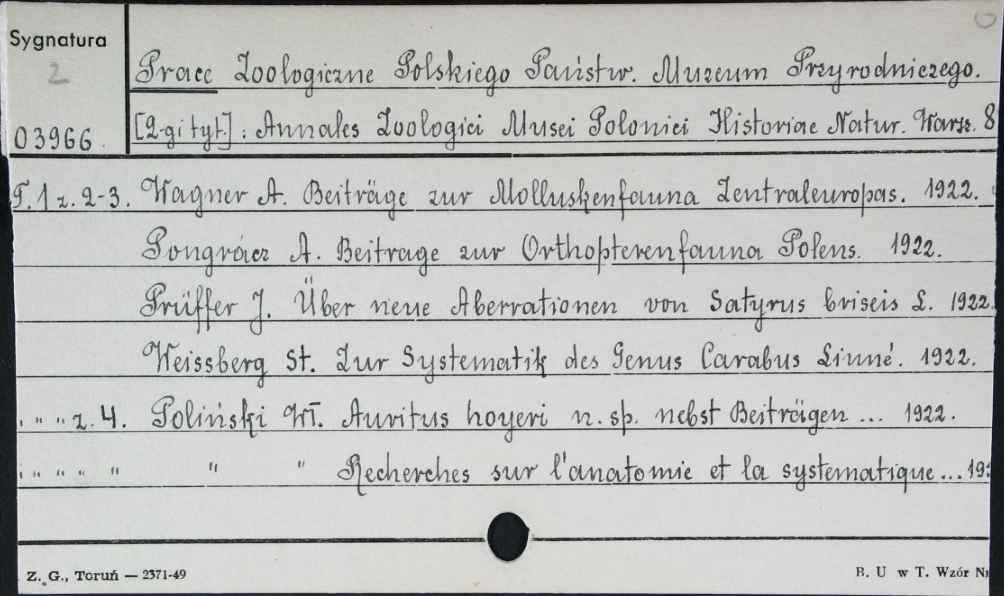 Sygnatura
2
Prace Zoologiczne Polskiego Państw. Muzeum Przyrodniczego.
03966. [2-gi tyt.]: Annales Zoologici Musei Polonici Historiae Natur. Warsz. 8
T. 1 z. 2-3. Wagner A. Beiträge zur Molluskenfauna Zentraleuropas. 1922.
Pongrácz A. Beitrage zur Orthopterenfauna Polens. 1922.
Prüffer J. Über neue Aberrationen von Satyrus briseis L. 1922.
Weissberg St. Zur Systematik des Genus Carabus Linné. 1922.
" " " z. 4. Poliński Wł. Auritus hoyeri n. sp. nebst Beiträgen ... 1922.
" " " " " " " Recherches sur l'anatomie et la systematique ... 19
Z. G., Toruń — 2371-49
B. U w T. Wzór Nr